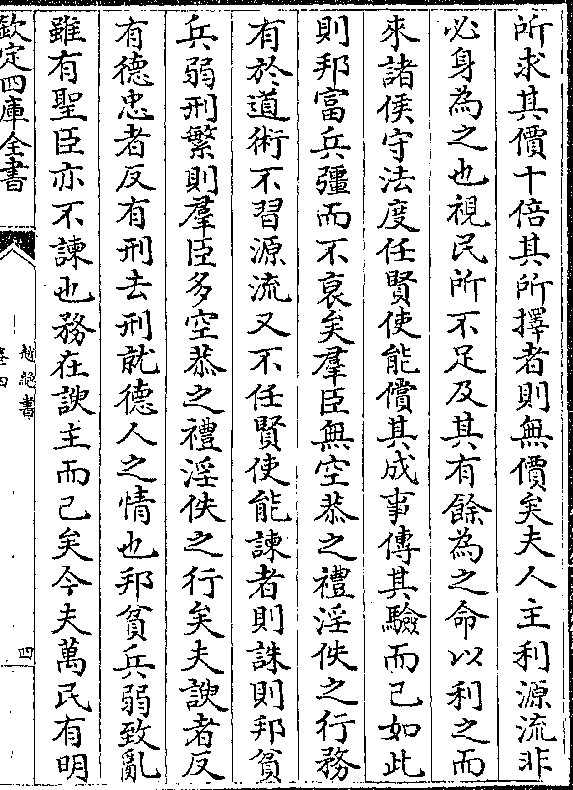 所求其價十倍其所擇者則無價矣夫人主利源流非
必身為之也視民所不足及其有餘為之命以利之而
來諸侯守法度任賢使能償其成事傳其驗而已如此
則邦富兵彊而不衰矣羣臣無空恭之禮淫佚之行務
有於道術不習源流又不任賢使能諫者則誅則邦貧
兵弱刑繁則羣臣多空恭之禮淫佚之行矣夫諛者反
有德忠者反有刑去刑就德人之情也邦貧兵弱致亂
雖有聖臣亦不諫也務在諛主而已矣今夫萬民有明
欽定四庫全書
越絕書
卷四
四